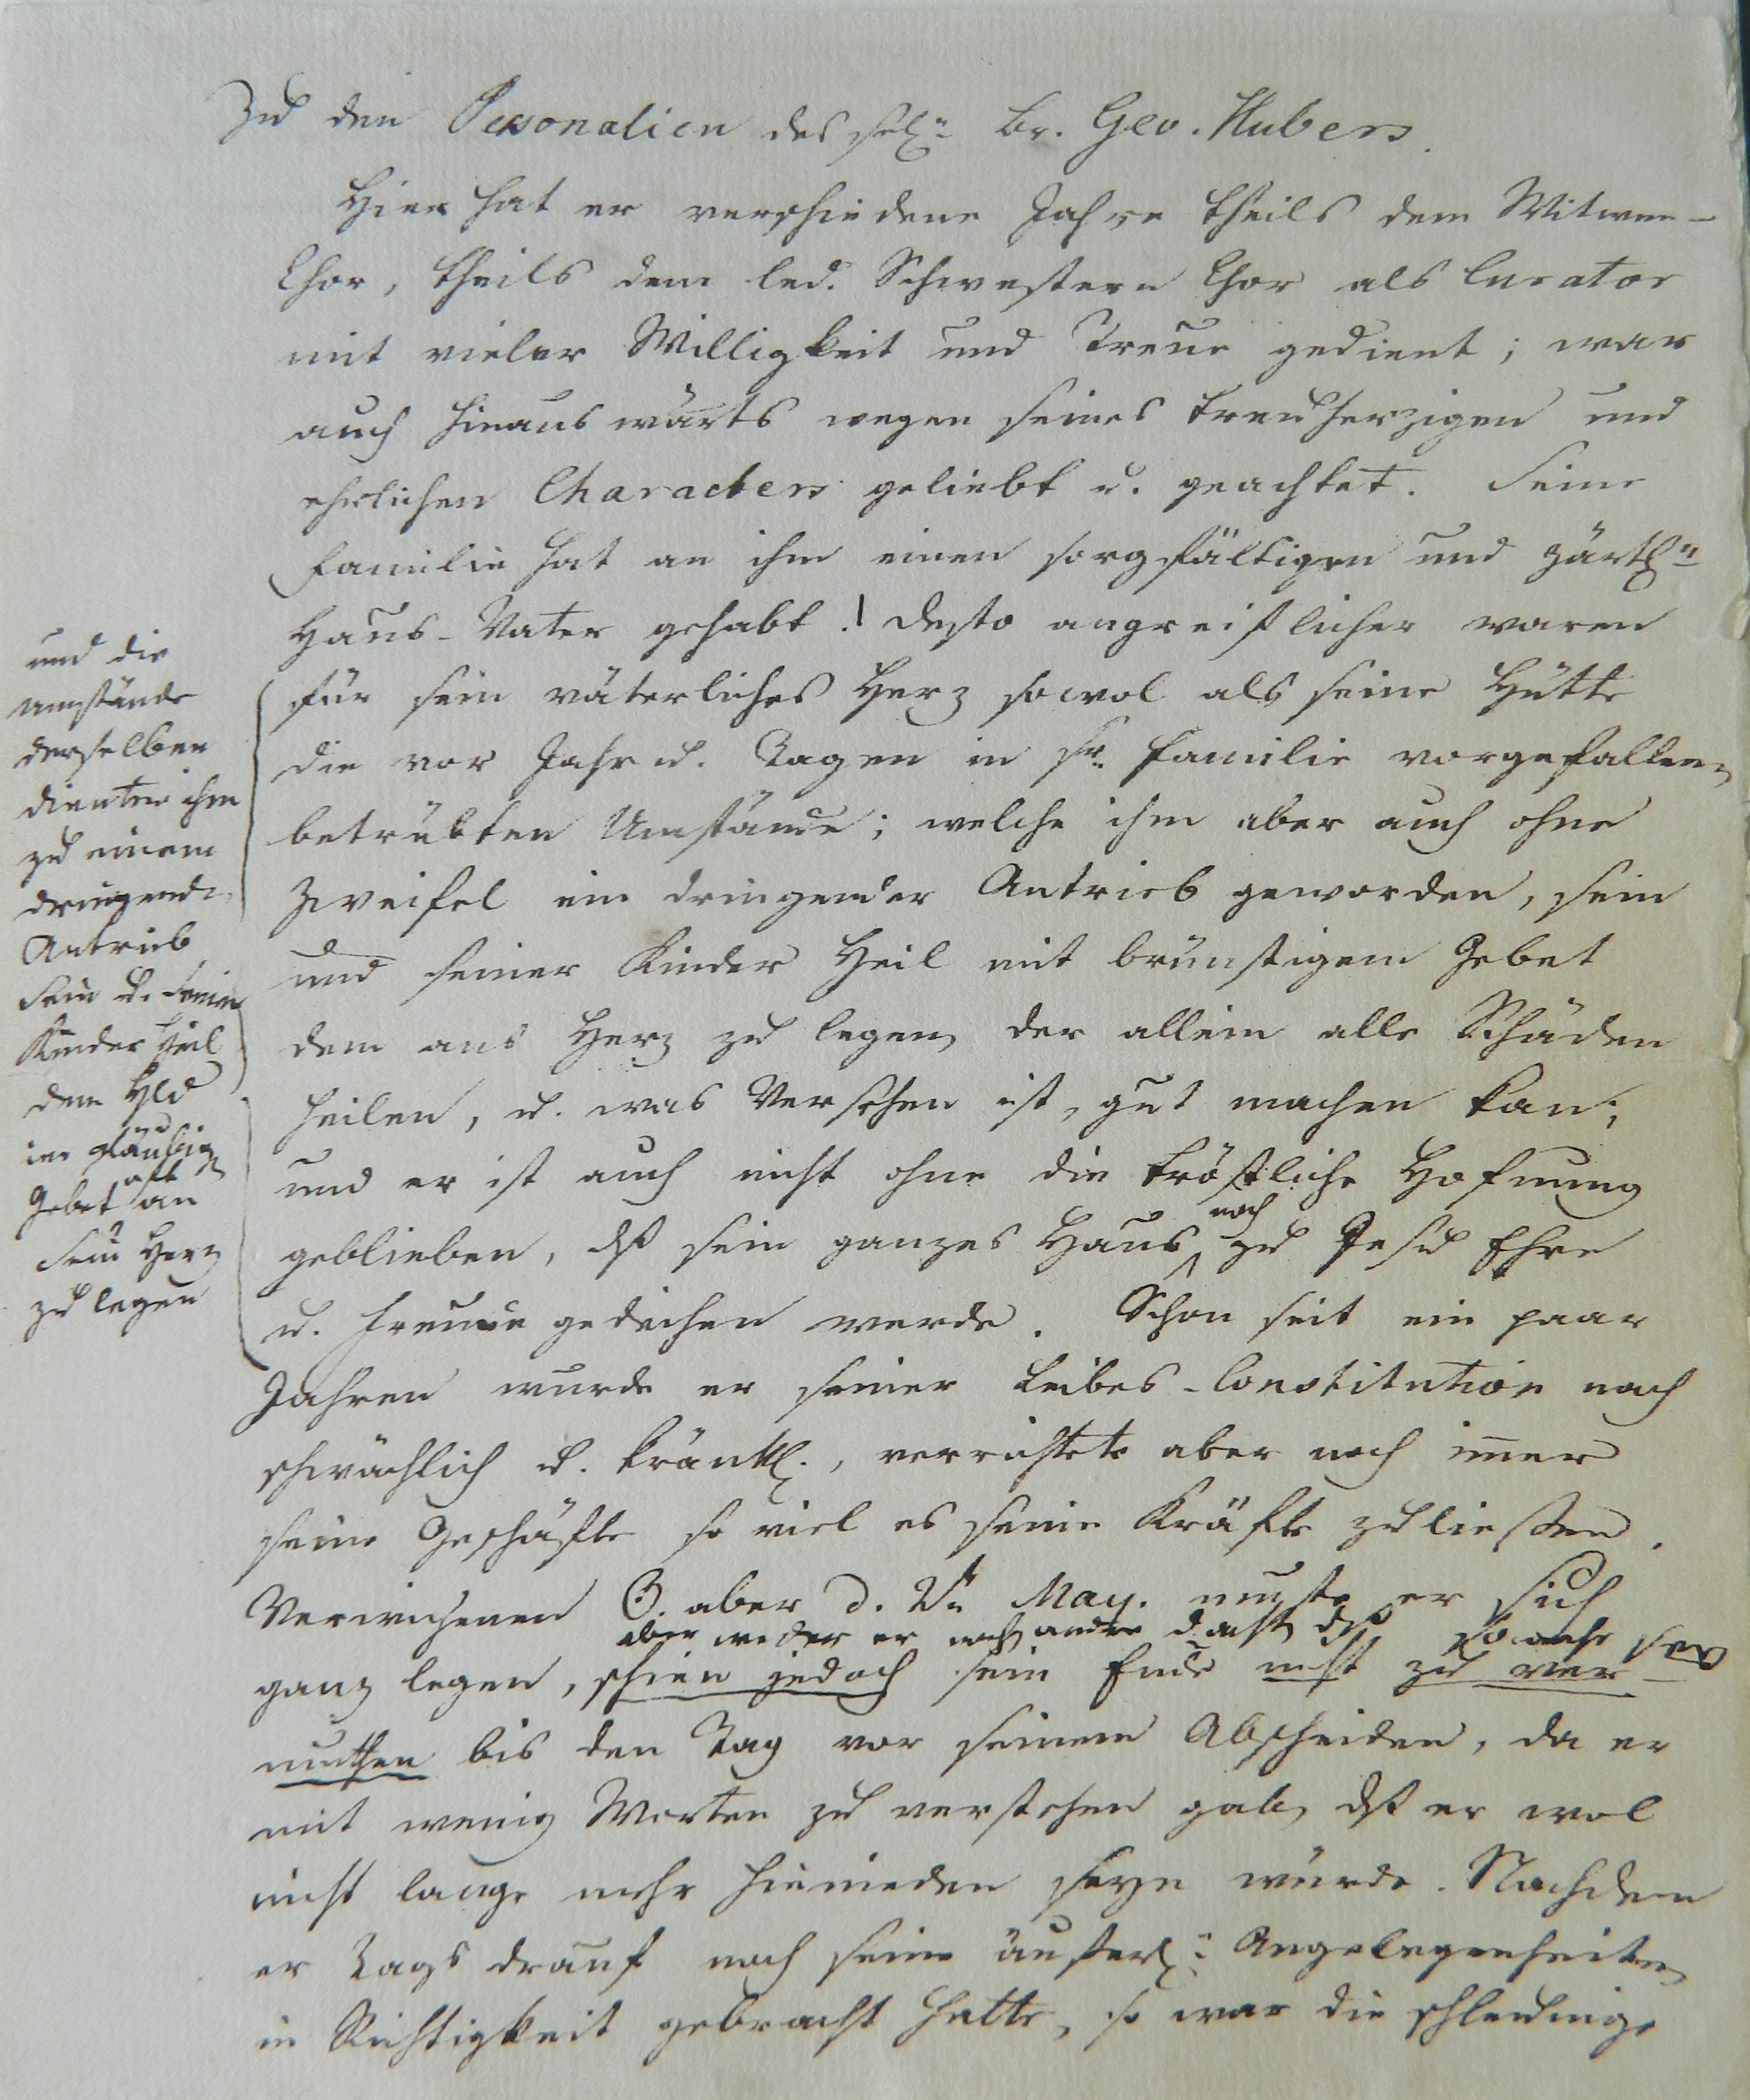 Zu den Personalien des sel.n Br. Geo. Hubers.
Hier hat er verschiedene Jahre theils dem Witwen-
Chor, theils dem led. Schwestern Chor als Curator
mit vieler Willigkeit und Treue gedient; war
auch hinauswärts wegen seines treuherzigen und
ehrlichen Characters geliebt u. geachtet. Seine
Familie hat an ihm einen sorgfältigen und zärtl.n
Haus-Vater gehabt. Desto angreiflicher waren
für sein väterliches Herz sowol als seine Hütte
die vor Jahr u. Tagen in sr. Familie vorgefallen
betrübten Umstände; welche ihm aber auch ohne
Zweifel ein dringender Antrieb geworden, sein
und seiner Kinder Heil mit brünstigem Gebet
dem ans Herz zu legen, der allein alle Schäden
heilen, u. was versehen ist, gut machen kan;
und er ist auch nicht ohne die tröstliche Hofnung
geblieben, dß sein ganzes Haus noch zu Jesu Ehre
u. Freude gedeihen werde. Schon seit ein paar
Jahren wurde er seiner Leibes-Constitution nach
schwächlich u. kränkl., verrichtete aber noch imer
seine Geschäfte so viel es seine Kräfte zuliessen.
Verwichenen aber d. May. muste er sich
aber weder er noch andre dacht dß so nahe sey
ganz legen, schien jedoch sein Ende nicht zu ver-
muthen bis den Tag vor seinem Abscheiden, da er
mit wenig Worten zu verstehen gab, dß er wol
nicht lange mehr hienieden seyn würde. Nachdem
er Tags drauf noch seine äusserl.n Angelegenheiten
in Richtigkeit gebracht hatte, so war die schleunige
und die
Umstände
derselben
dienten ihm
zu einem
dringenden
Antrieb
sein u. seiner
Kinder Heil
dem Hld
im gläubigen
Gebet oft an
sein Herz
zu legen